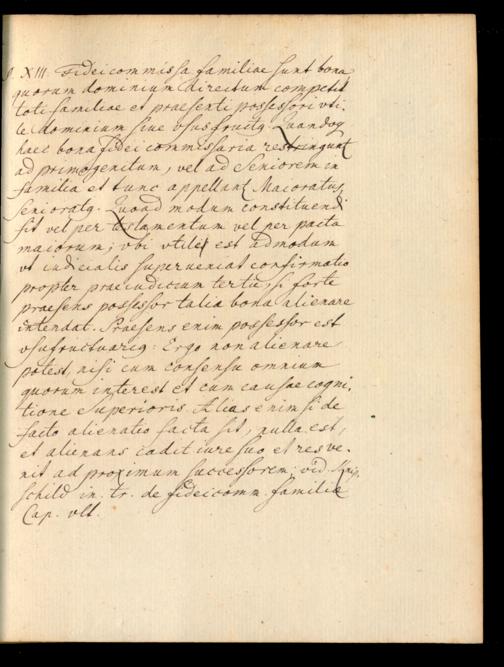 §. XIII. Fideicommissa familiae sunt bona
quorum dominium directum competit
toti familiae et praesenti possessori uti-
le dominium sive ususfructq. Quandoq
haec bona fideicommissaria restringunt
ad primogenitum, vel ad Seniorem in
familia et tunc appellant Maioratus,
Senioratq. Quoad modum constituendi
fit vel per testamentum vel per pacta
maiorum; vbi vtile est admodum
vt iudicialis superveniat confirmatio
propter praeiudicium tertii, si forte
praesens possessor talia bona alienare
intendat. Praesens enim possessor est
vsufructuariq: Ergo non alienare
potest, nisi cum consensu omnium
quorum interest et cum causae cogni-
tione Superioris. Alias enim si de
facto alienatio facta sit, nulla est,
et alienans cadit iure suo et res ve-
nit ad proximum successorem; vid. Knip-
schild in. tr. de fideicomm. familiae
Cap. vlt.